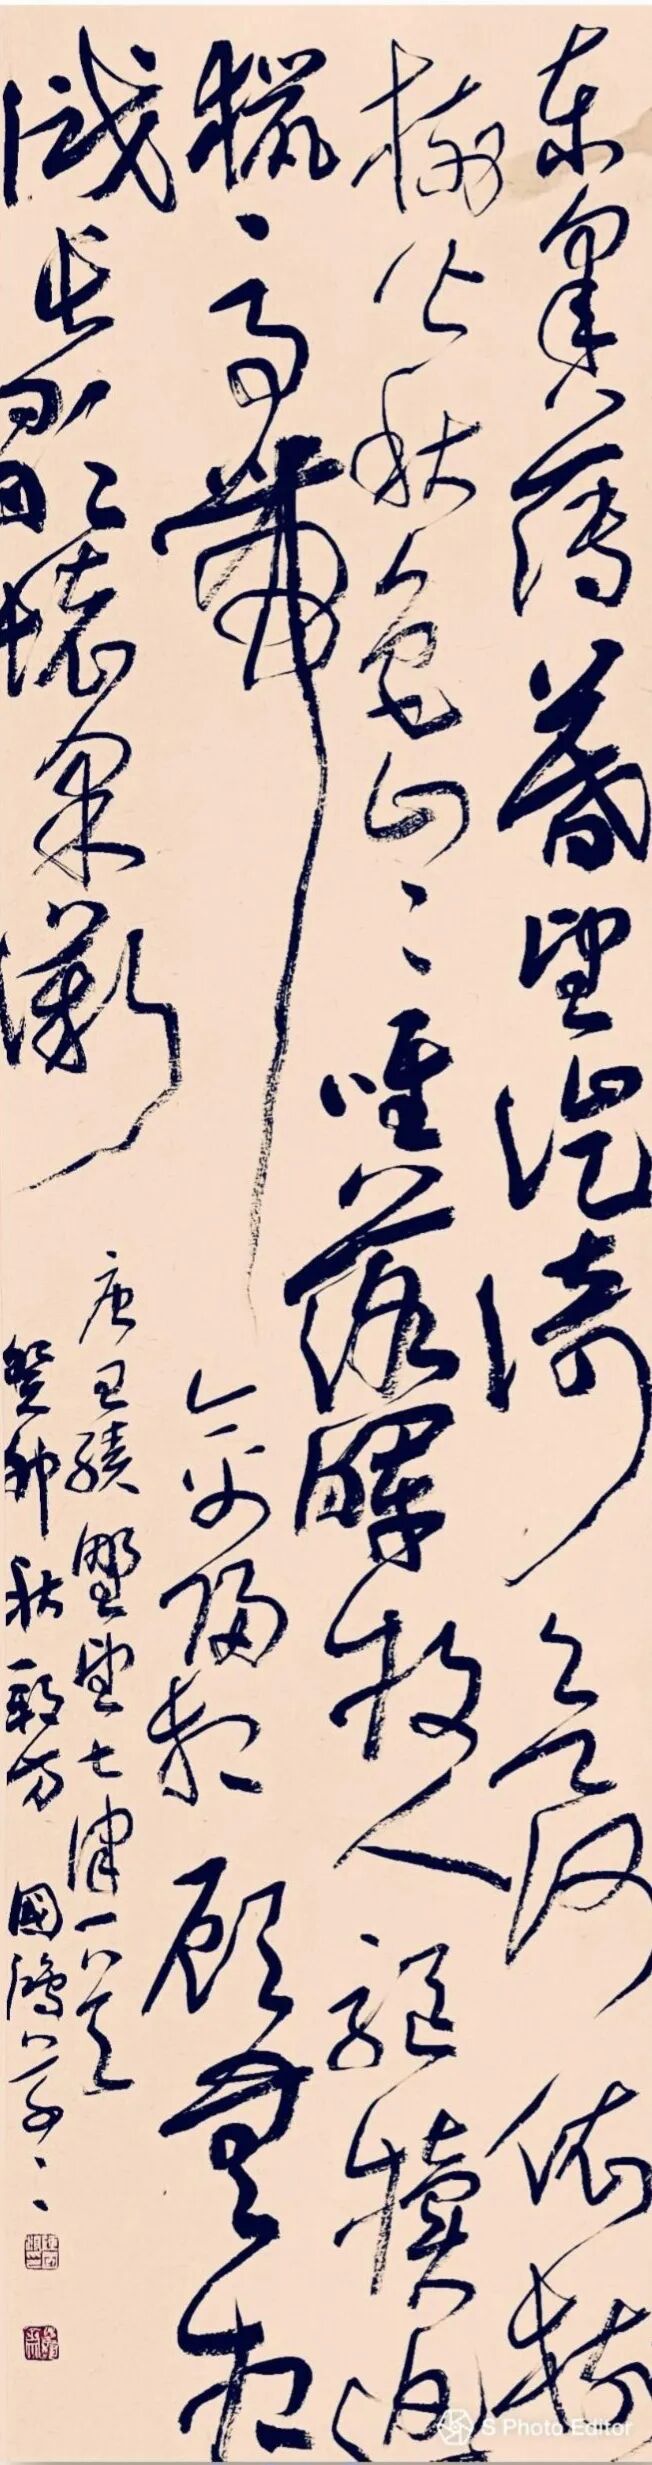 東皋薄暮望徙倚欲何依樹
樹皆秋色山〻唯落暉牧人驅犢返
獵馬帶禽歸相顧無相
識長歌懷采薇
唐王績野望七律一首
癸卯秋 國鴻
S Photo Editor